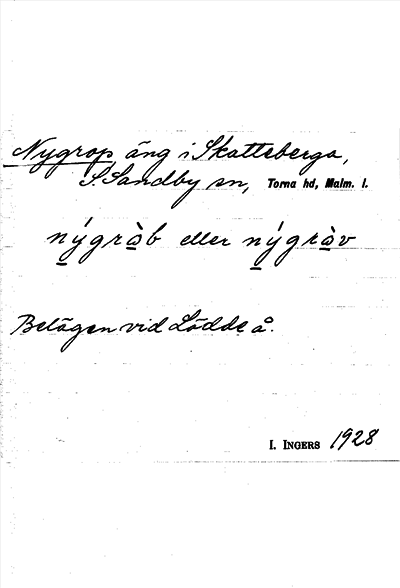 Nygrop äng i Skatteberga,
S. Sandby sn, Torna hd, Malm. l.
nýgràb eller nýgràv
Belägen vid Lödde å.
I. INGERS 1928